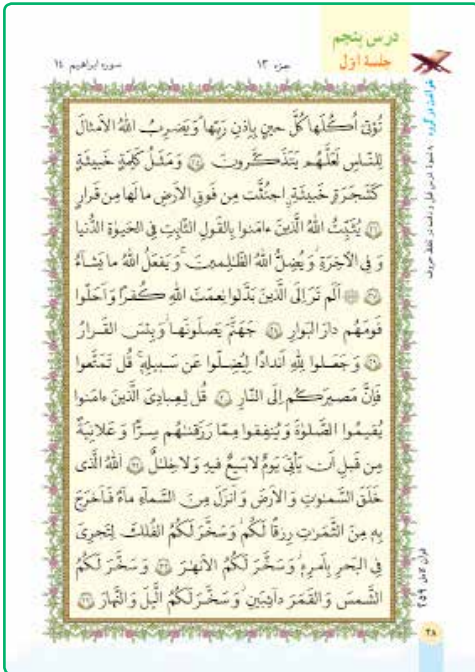 درس پنجم
جلسهٔ اوّل
جزء ۱۳
سوره ابراهیم ۱۴
تُؤتى اُكُلَها كُلَّ حينٍ بِاِذنِ رَبِّها وَ يَضرِبُ اللهُ الاَمثالَ
لِلنّاسِ لَعَلَّهُم يَتَذَكَّرونَ ﴿۲۵﴾ وَ مَثَلُ كَلِمَةٍ خَبيثَةٍ
كَشَجَرَةٍ خَبيثَةٍ اجتُثَّت مِن فَوقِ الاَرضِ ما لَها مِن قَرارٍ
﴿۲۶﴾ يُثَبِّتُ اللهُ الَّذينَ ءامَنوا بِالقَولِ الثّابِتِ فِى الحَيوٰةِ الدُّنيا
وَ فِى الآخِرَةِ وَ يُضِلُّ اللهُ الظّٰلِمينَ وَ يَفعَلُ اللهُ ما يَشاءُ
﴿۲۷﴾ اَلَم تَرَ اِلَى الَّذينَ بَدَّلوا نِعمَتَ اللهِ كُفرًا وَ اَحَلّوا
قَومَهُم دارَ البَوارِ ﴿۲۸﴾ جَهَنَّمَ يَصلَونَها وَ بِئسَ القَرارُ
﴿۲۹﴾ وَ جَعَلوا لِلّٰهِ اَندادًا لِيُضِلّوا عَن سَبيلِه قُل تَمَتَّعوا
فَاِنَّ مَصيرَكُم اِلَى النّارِ ﴿۳۰﴾ قُل لِعِبادِىَ الَّذينَ ءامَنوا
يُقيمُوا الصَّلوٰةَ وَ يُنفِقوا مِمّا رَزَقنٰهُم سِرًّا وَ عَلانِيَةً
مِن قَبلِ اَن يَأتِىَ يَومٌ لا بَيعٌ فيهِ وَ لا خِلٰلٌ ﴿۳۱﴾ اَللهُ الَّذى
خَلَقَ السَّمٰوٰتِ وَ الاَرضَ وَ اَنزَلَ مِنَ السَّماءِ ماءً فَاَخرَجَ
بِه مِنَ الثَّمَرٰتِ رِزقًا لَكُم وَ سَخَّرَ لَكُمُ الفُلكَ لِتَجرِىَ
فِى البَحرِ بِاَمرِه وَ سَخَّرَ لَكُمُ الاَنهٰرَ ﴿۳۲﴾ وَ سَخَّرَ لَكُمُ
الشَّمسَ وَ القَمَرَ دائِبَينِ وَ سَخَّرَ لَكُمُ الَّيلَ وَ النَّهارَ ﴿۳۳﴾
قرآن کامل ۲۵۹
۲۸